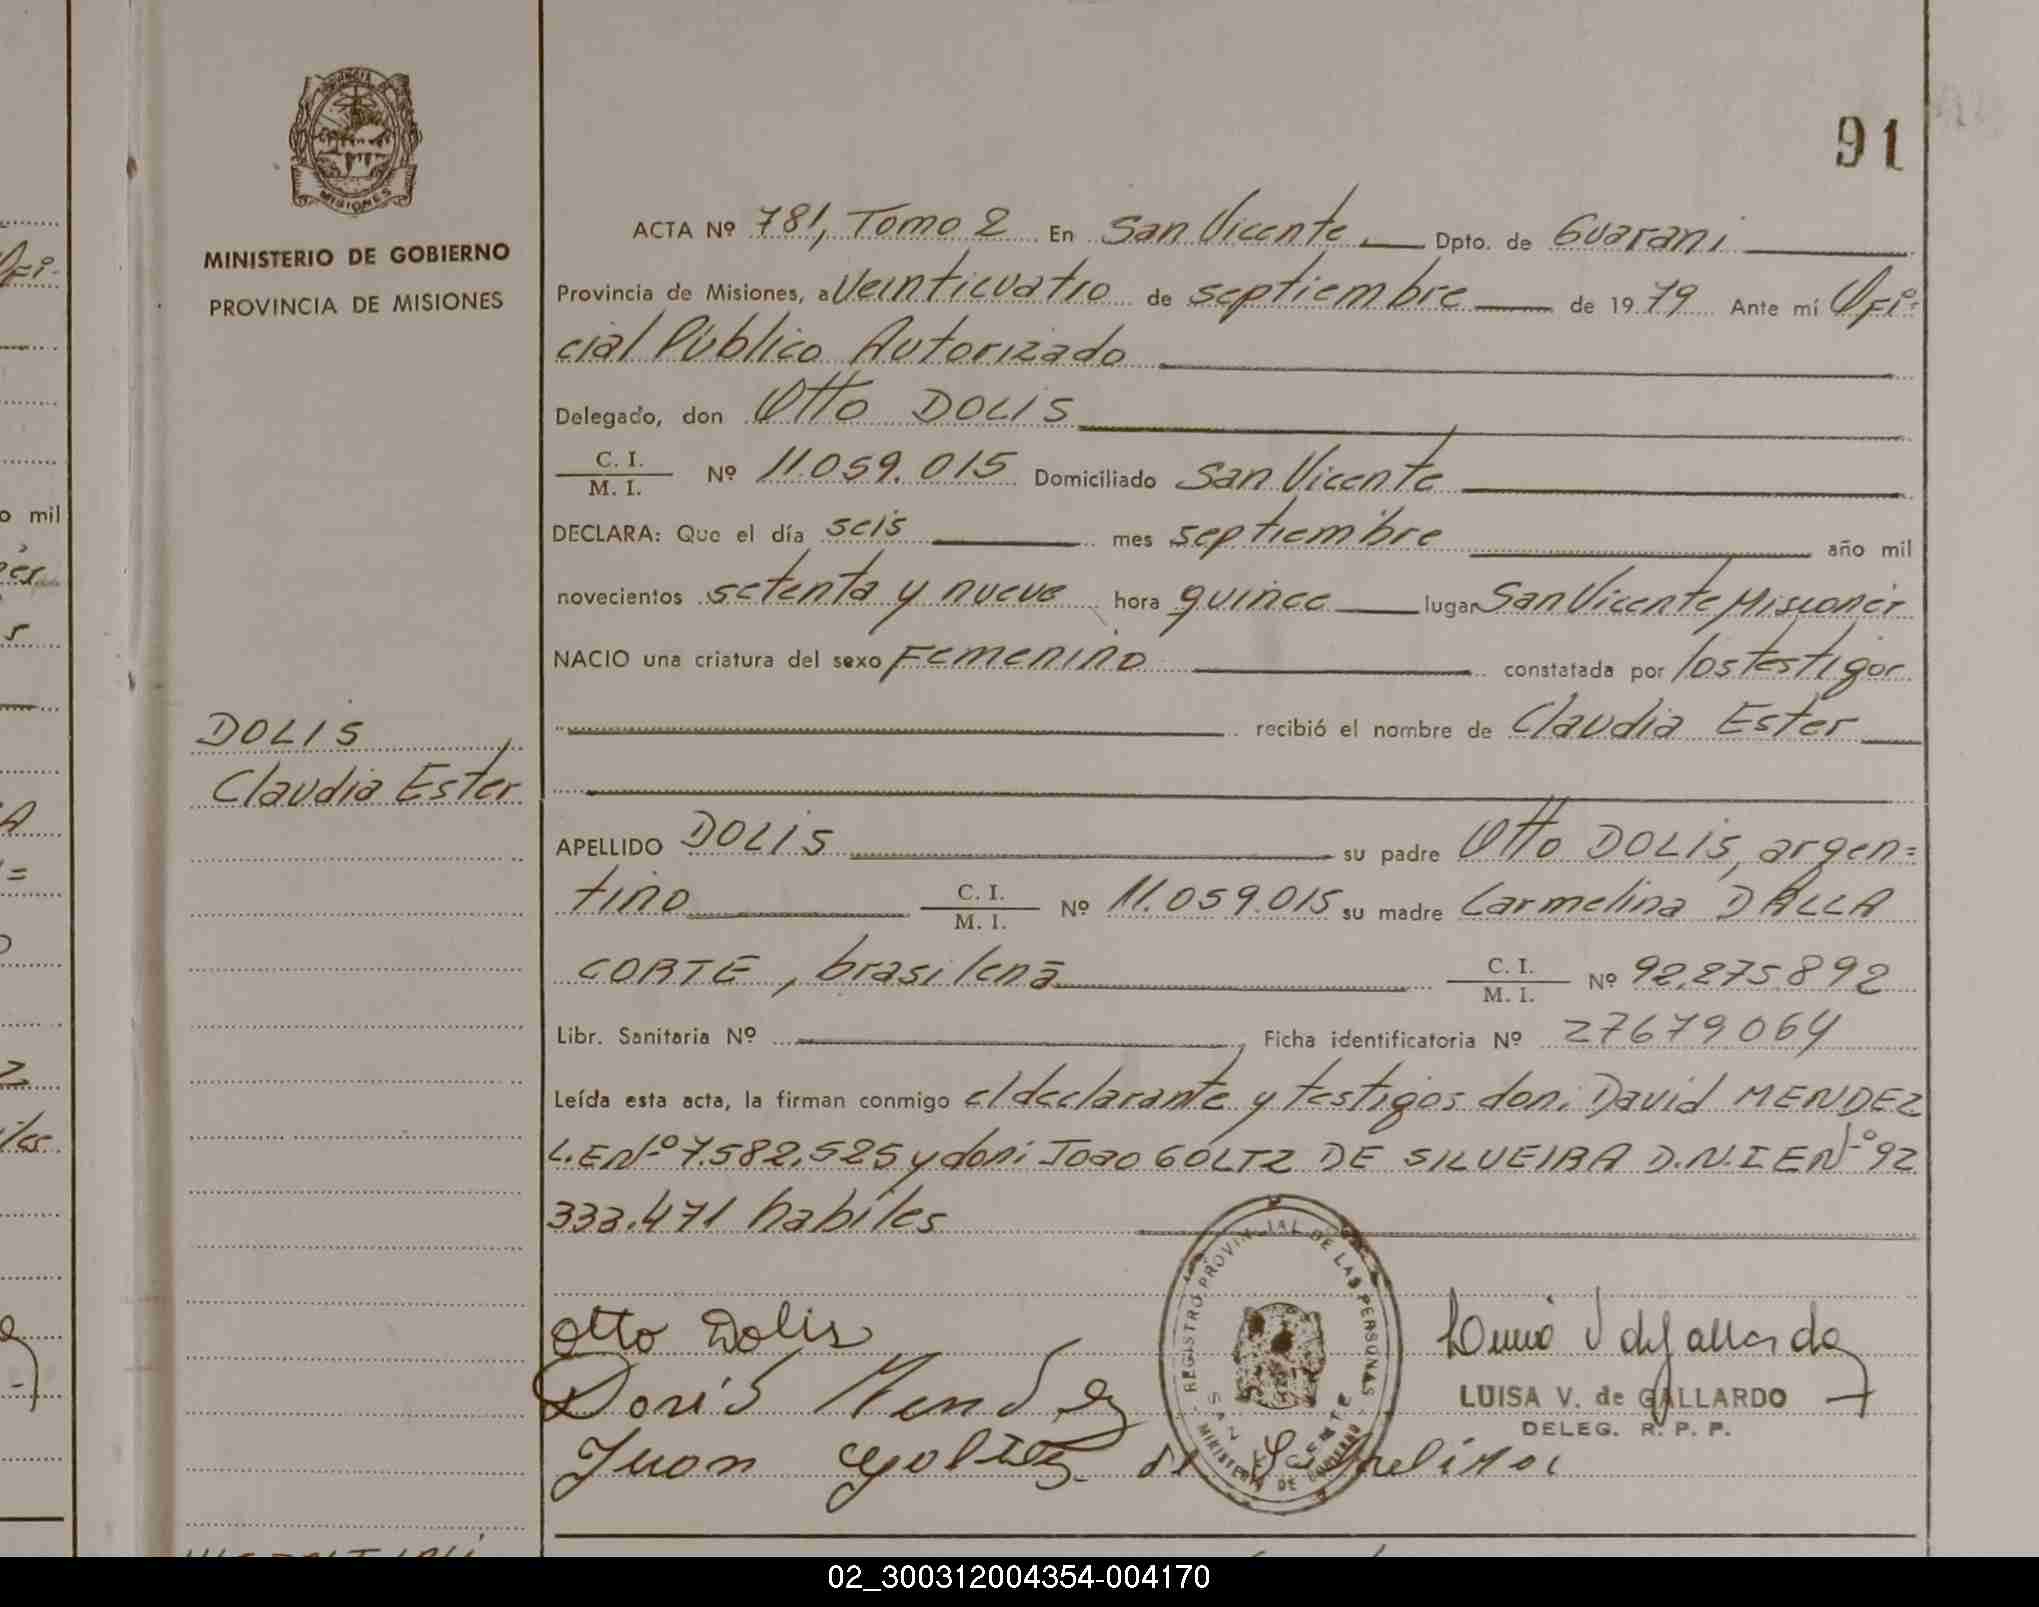 91
PROVINCIA DE
MISIONES
MINISTERIO DE GOBIERNO
PROVINCIA DE MISIONES
ACTA Nº 781, Tomo 2 En San Vicente Dpto. de Guarani
Provincia de Misiones, a Veinticuatro de septiembre de 1979 Ante mí Ofi-
cial Público Autorizado
Delegado, don Otto DOLIS
C. I.
M. I. Nº 11.059.015 Domiciliado San Vicente
DECLARA: Que el día seis mes septiembre año mil
novecientos setenta y nueve hora quince lugar San Vicente Misiones
NACIO una criatura del sexo Femenino constatada por los testigos
recibió el nombre de Claudia Ester
DOLIS
Claudia Ester
APELLIDO DOLIS su padre Otto DOLIS, argen=
tino C. I.
M. I. Nº 11.059.015 su madre Carmelina DALLA
CORTE, brasilena C. I.
M. I. Nº 92.275.892
Libr. Sanitaria Nº Ficha identificatoria Nº 27679064
Leída esta acta, la firman conmigo el declarante y testigos don: David MENDEZ
L.E Nº 7.582.525 y don: Joao GOLTZ DE SILVEIRA D.N.I E Nº 92
333.471 habiles
Otto Dolis
REGISTRO PROVINCIAL DE LAS PERSONAS
SAN VICENTE
MINISTERIO DE GOBIERNO
LUISA V. de GALLARDO
DELEG. R. P. P.
02_300312004354-004170